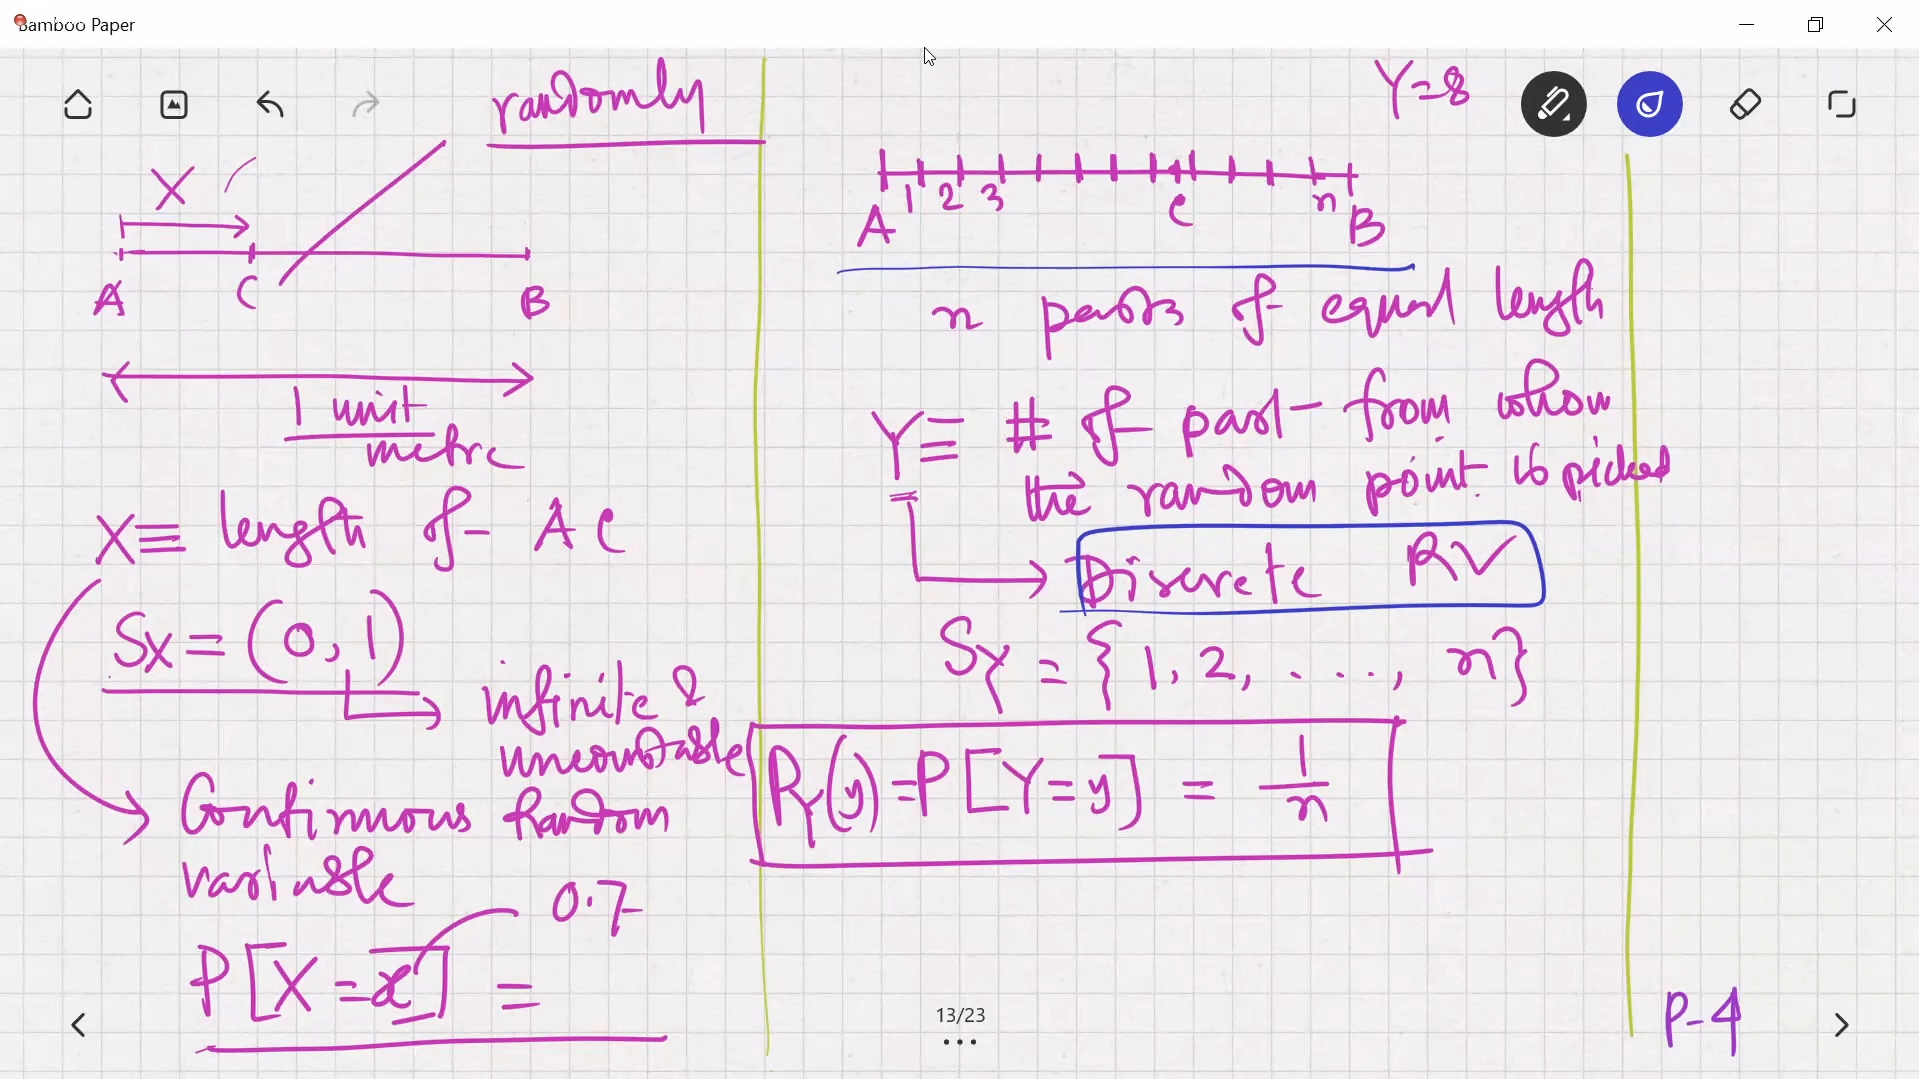 Bamboo Paper
randomly
X
A C B
1 unit
metre
X ≡ length of AC
Sx = (0, 1)
infinite &
uncountable
Continuous Random
variable
0.7
P[X = x] =
Y=8
1 2 3 C n
A B
n parts of equal length
Y ≡ # of part from whom
the random point is picked
Discrete RV
SY = {1, 2, ...., n}
PY(y) = P[Y = y] = 1/n
13/23
P-4